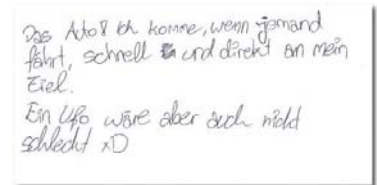 Das Auto! Ich komme, wenn jemand
fährt, schnell und direkt an mein
Ziel.
Ein Ufo wäre aber auch nicht
schlecht xD